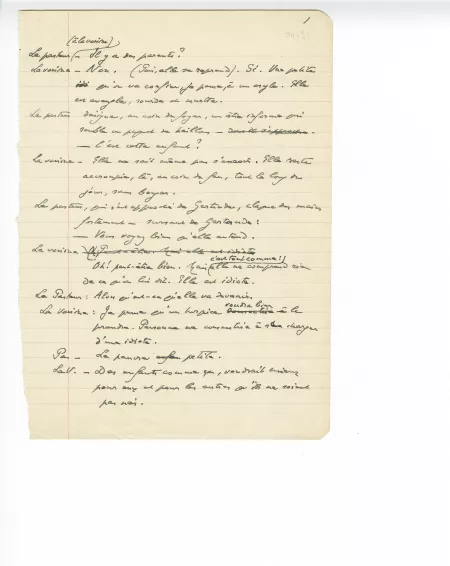 1
(à la voisine)
Le pasteur — Il y a des parents?
La voisine — Non. (Puis, elle se reprend). Si. Une petite
qu'on va confier, je pense, à un asyle. Elle
est aveugle, sourde et muette.
Le pasteur désigne, au coin du foyer, un être informe qui
semble un paquet de haillons —
— C'est cette enfant?
La voisine — Elle ne sait même pas s'asseoir. Elle reste
accroupie, là, au coin du feu, tout le long du
jour, sans bouger.
Le pasteur, qui s'est approché de Gertrude, claque des mains
fortement — sursaut de Gertrude:
— Vous voyez bien qu'elle entend.
La voisine
c'est tout comme!)
Oh! peut-être bien. Mais elle ne comprend rien
de ce qu'on lui dit. Elle est idiote.
Le Pasteur: Alors qu'est-ce qu'elle va devenir.
voudra bien
La voisine: Je pense qu'un hospice à la
prendre. Personne ne consentira à se charger
d'une idiote.
Pas — La pauvre petite.
La V. — Des enfants comme ça, vaudrait mieux
pour eux et pour les autres qu'ils ne soient
pas nés.